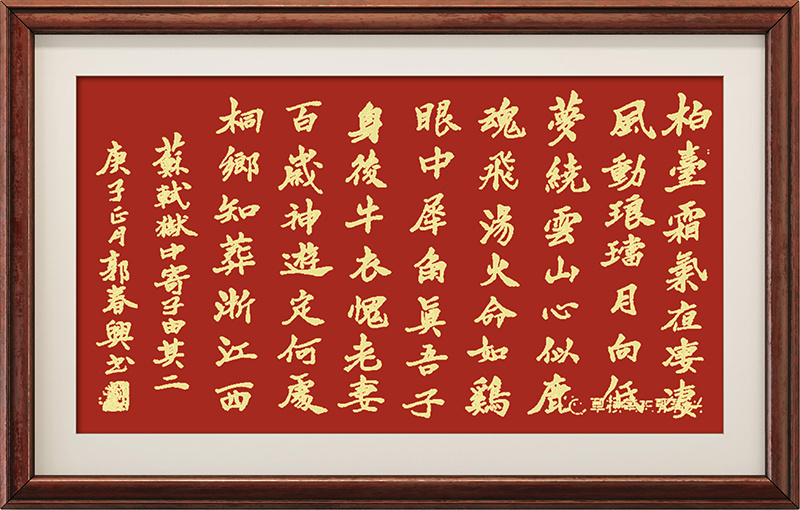 柏臺霜氣夜凄凄
風動琅璫月向低
夢繞雲山心似鹿
魂飛湯火命如鷄
眼中犀角真吾子
身後牛衣愧老妻
百歲神遊定何處
桐鄉知葬浙江西
蘇軾獄中寄子由其二
庚子正月郭春興書